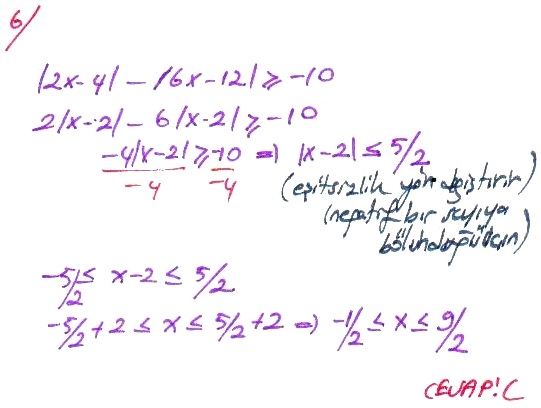 6/
|2x-4| - |6x-12| ≥ -10
2|x-2| - 6|x-2| ≥ -10
-4|x-2| ≥ -10 ⇒ |x-2| ≤ 5/2
-4 -4
(eşitsizlik yön değiştirir)
(negatif bir sayıya
bölündüğü için)
-5/2 ≤ x-2 ≤ 5/2
-5/2+2 ≤ x ≤ 5/2+2 ⇒ -1/2 ≤ x ≤ 9/2
CEVAP: C